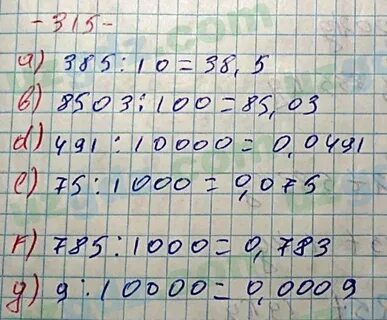 -315-
a) 385:10=38,5
b) 8503:100=85,03
d) 491:10000=0,0491
e) 75:1000=0,075
f) 785:1000=0,783
g) 9:10000=0,0009